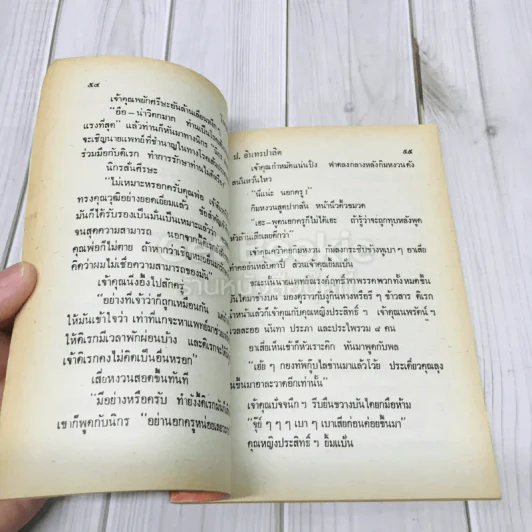 ๕๔
เจ้าคุณพยักศีรษะอันล้านเลี่ยน
"อือ - น่าวิตกมาก ท่านเป็นโรค
แรงที่สุด" แล้วท่านก็หันมาทางนิกร
จะเชิญนายแพทย์ที่ชำนาญในทางโรค
ร่วมมือกับดิเรก ทำการรักษาท่านใน
นิกรสั่นศีรษะ
"ไม่เหมาะหรอกครับคุณพ่อ
ทรงคุณวุฒิอย่างยอดเยี่ยมแล้ว
มันก็ได้รับรองเป็นมั่นเป็นเหมาะแล้วว่า
จนสุดความสามารถ นอกจากนี้ดิเรก
คุณพ่อก็ไม่ตาย ถ้าหากว่าเชิญหมอ
คิดว่าผมไม่เชื่อความสามารถของมัน
เจ้าคุณนิ่งอึ้งไปสักครู่
"อย่างที่เจ้าว่าก็ถูกเหมือนกัน
ให้มันเข้าใจว่า เท่าที่แกจะหาแพทย์มาช่วย
ให้ดิเรกมีเวลาพักผ่อนบ้าง และดิเรก
เจ้าดิเรกคงไม่คิดเป็นอื่นหรอก"
เสี่ยหงวนสอดขึ้นทันที
"มีอย่างหรือครับ ทำยังงี้ดิเรก
เขาก็พูดกับนิกร "อย่านอกครูหน่อยเลย
ป. อินทรปาลิต
๕๕
เจ้าคุณกำหมัดแน่นปึง ฟาดลงกลางหลังกิมหงวนดัง
สนั่นหวั่นไหว
"นี่แน่ะ นอกครู !"
กิมหงวนสูดปากลั่น หน้านิ่วคิ้วขมวด
"เฮะ - พูดนอกครูก็ไม่ได้เฮะ ถ้ารู้ว่าจะถูกทุบหลังพูด
หัวล้านเสียเลยดีกว่า"
เจ้าคุณคว้าคอกิมหงวน ก้มลงกระซิบข้างหูเบา ๆ อาเสี่ย
ทำคอย่นหลับตาปี๋ ส่วนเจ้าคุณยิ้มแป้น
ขณะนั้นนายแพทย์ทรงค์ฤทธิ์พาพรรคพวกทั้งหมดขึ้น
บันไดมาข้างบน
นำหน้าแล้วก็เจ้าคุณกับคุณหญิงประสิทธิ์ ฯ เจ้าคุณนพรัตน์ ฯ
นันทา ประภา และประไพรวม ๘ คน
อาเสี่ยเห็นเข้าก็หัวเราะคิก หันมาพูดกับพล
"เฮ้ย ๆ กองทัพกูไบลข่านมาแล้วโว้ย ประเดี๋ยวคุณลุง
ขึ้นมาอาละวาดอีกเท่านั้น"
เจ้าคุณปัจจนึก ฯ รีบยืนขวางบันไดยกมือห้าม
"จุ๊ย์ ๆ ๆ ๆ เบา ๆ เบาเสียก่อนค่อยขึ้นมา"
คุณหญิงประสิทธิ์ ฯ ยิ้มแป้น